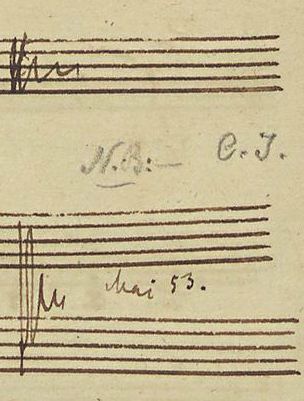 N.B:— C. J.
Mai 53.